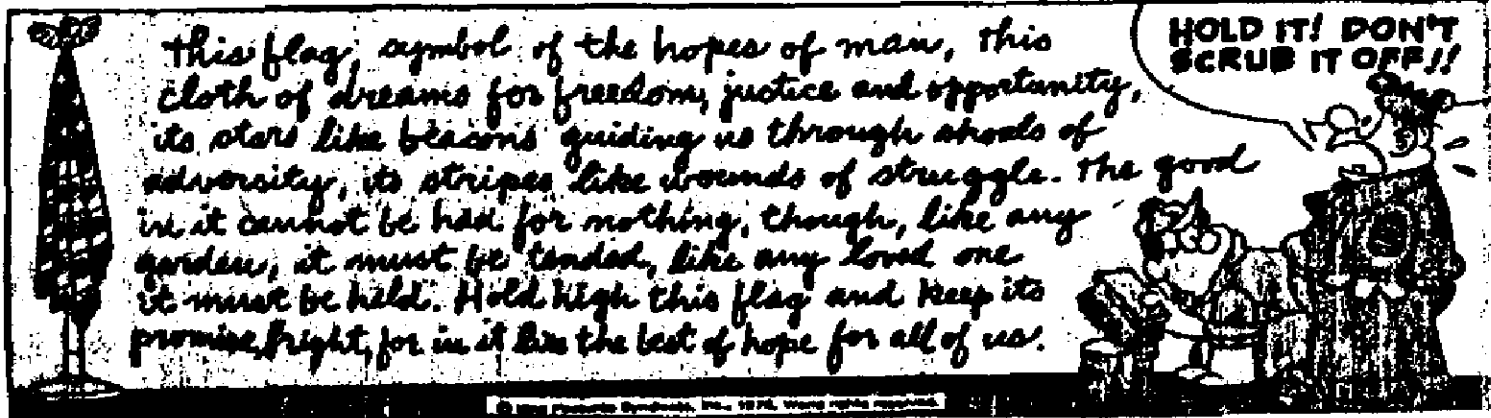 This flag, symbol of the hopes of man, this
cloth of dreams for freedom, justice and opportunity,
its stars like beacons guiding us through shoals of
adversity, its stripes like wounds of struggle. The good
in it cannot be had for nothing, though, like any
garden, it must be tended, like any loved one
it must be held. Hold high this flag and keep its
promise bright, for in it lies the best of hope for all of us.
HOLD IT! DON'T
SCRUB IT OFF!!
rights reserved.